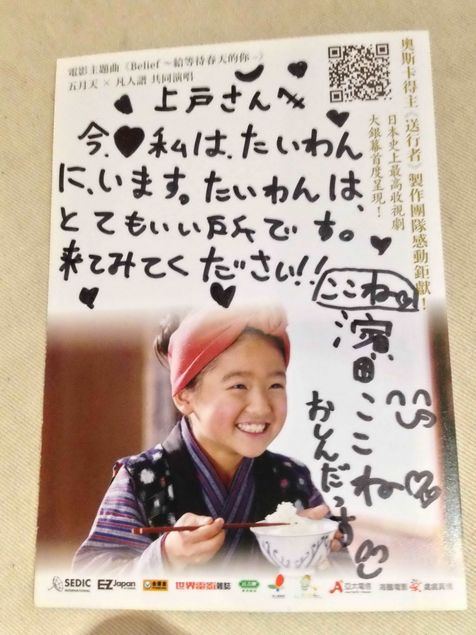 電影主題曲《Belief ～給等待春天的你～》
五月天 × 凡人譜 共同演唱
奧斯卡得主《送行者》製作團隊感動鉅獻！
日本史上最高收視劇
大銀幕首度呈現！
上戸さんへ
今、私は、たいわん
に、います。たいわんは、
とてもいい所です。
来てみてください!!
ここね
濱田ここね
おしんだっす
SEDIC
INTERNATIONAL
E-Z Japan
世界電影雜誌
亞太電信
海鵬電影